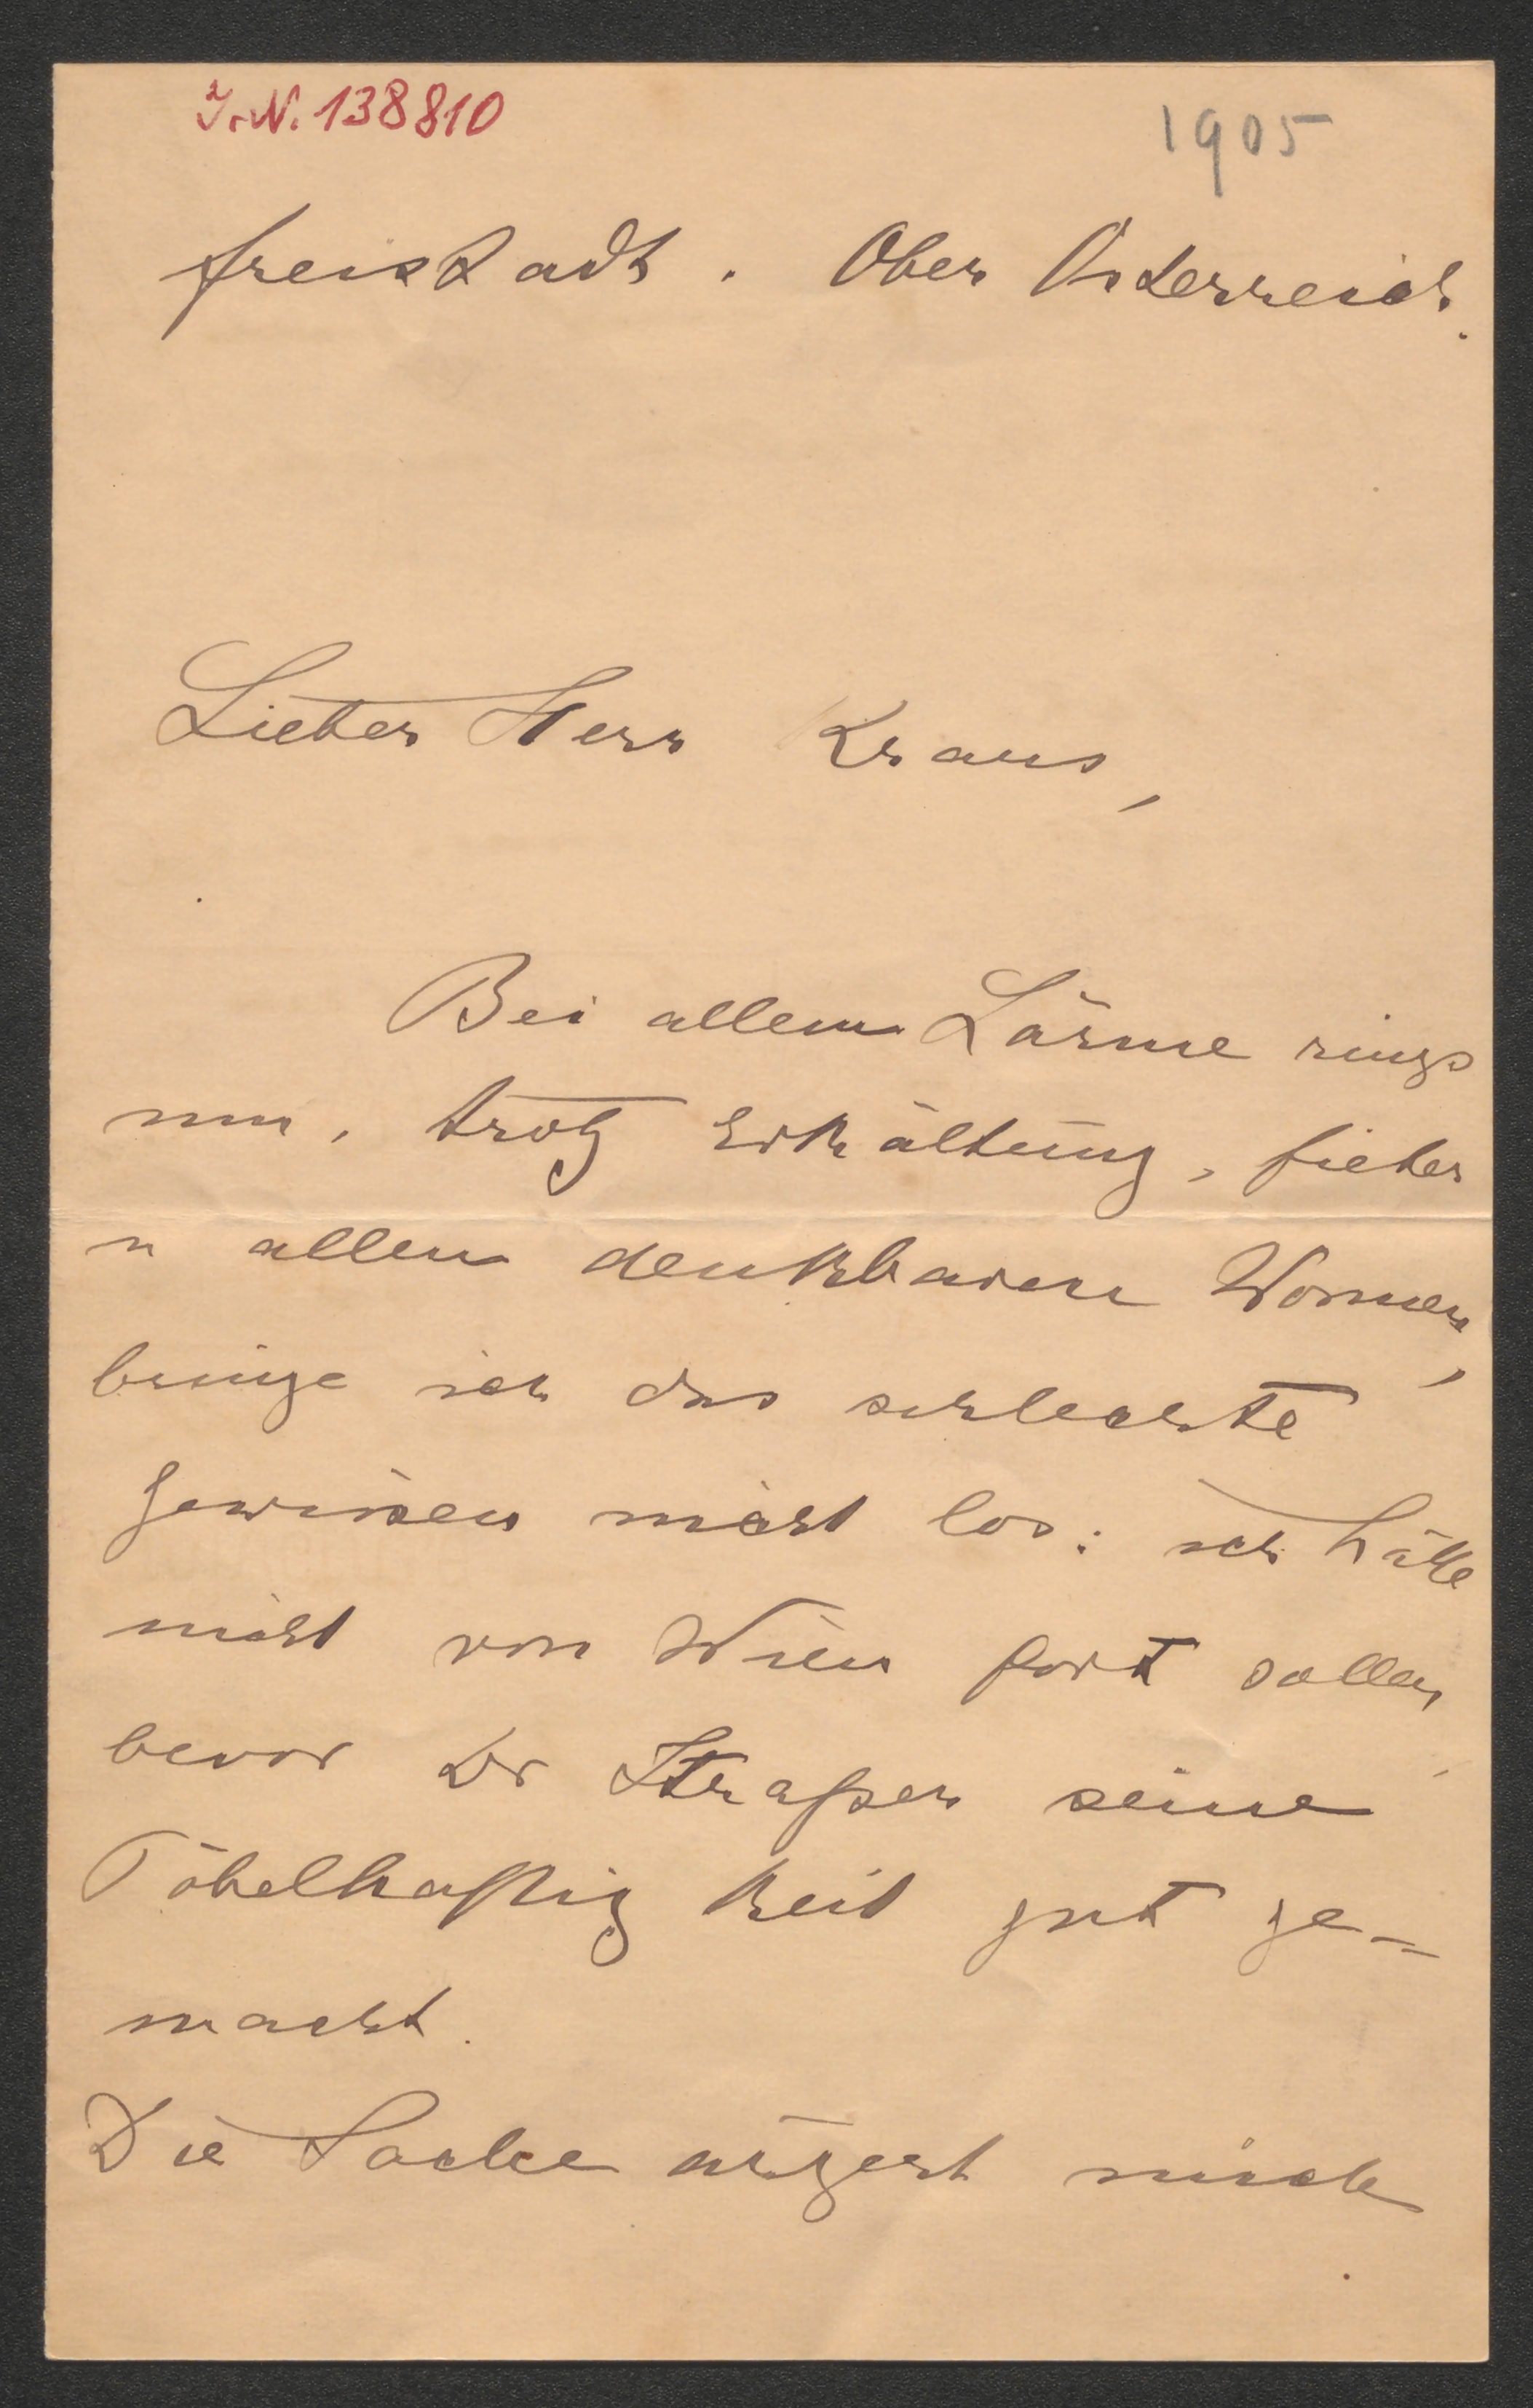 J.N. 138810
1905
Freistadt. Ober Österreich.
Lieber Herr Kraus,
Bei allem Lärme rings
um, trotz Erkältung, Fieber
u allen denkbaren Wonnen,
bringe ich das schlechte
Gewissen nicht los: ich hätte
nicht von Wien fort sollen,
bevor Dr Straßer seine
Pöbelhaftigkeit gut ge=
macht.
Die Sache ärgert mich